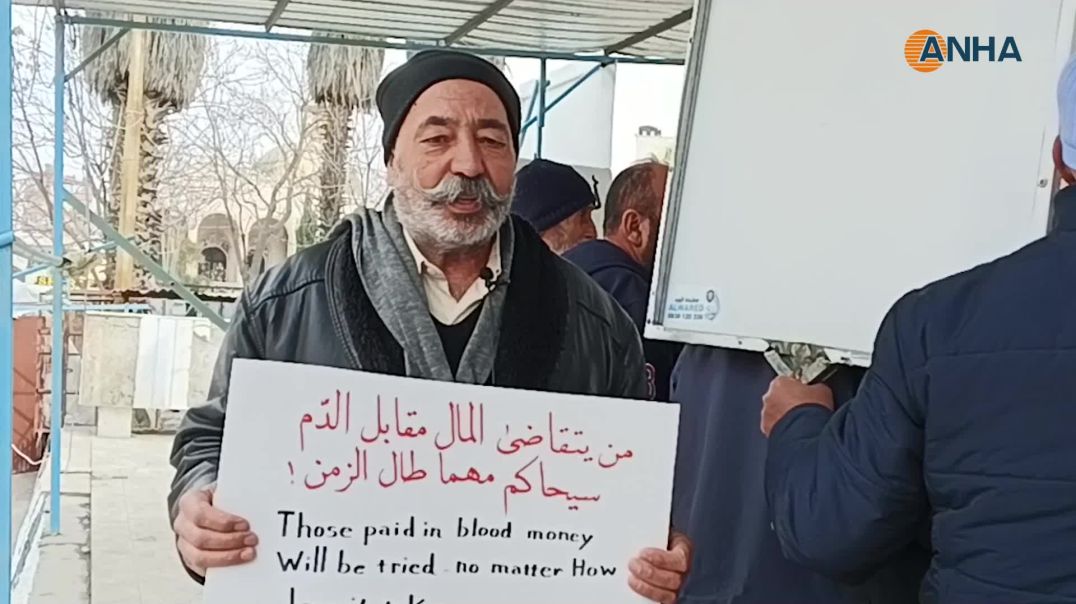 ANHA
من يتقاضىٰ المال مقابل الدّم
سيحاكم مهما طال الزمن !
Those paid in blood money
Will be tried no matter How
ALWAHED